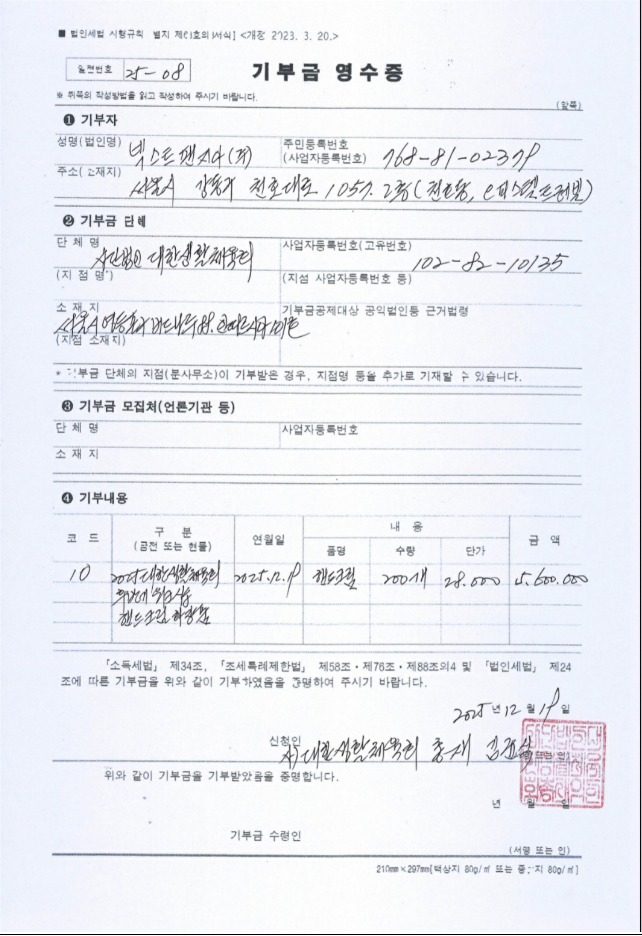 ■ 법인세법 시행규칙 <개정 2023. 3. 20.>
일련번호 25-08
기부금 영수증
※ 뒤쪽의 작성방법을 읽고 작성하여 주시기 바랍니다.
(앞쪽)
❶ 기부자
성명(법인명) 넥스트팬지아(주)
주민등록번호
(사업자등록번호) 768-81-02379
주소(소재지) 서울시 강동구 천호대로 1057. 2층(천호동,
❷ 기부금 단체
단 체 명 사단법인 대한생활체육회
(지 점 명)
사업자등록번호(고유번호) 102-82-10135
(지점 사업자등록번호 등)
소 재 지 서울시 영등포구
(지점 소재지)
기부금공제대상 공익법인등 근거법령
* 기부금 단체의 지점(분사무소)이 기부받은 경우, 지점명 등을 추가로 기재할 수 있습니다.
❸ 기부금 모집처(언론기관 등)
단 체 명
사업자등록번호
소 재 지
❹ 기부내용
코 드
구 분
(금전 또는 현물)
연월일
내 용
품명
수량
단가
금 액
10 2025 대한생활체육회 2025.12.19 핸드크림 200개 28.000 5.600.000
핸드크림 화장품
「소득세법」 제34조, 「조세특례제한법」 제58조ㆍ제76조ㆍ제88조의4 및 「법인세법」 제24
조에 따른 기부금을 위와 같이 기부하였음을 증명하여 주시기 바랍니다.
2025 년 12 월 19 일
신청인 사)대한생활체육회 총재
(서명 또는 인)
위와 같이 기부금을 기부받았음을 증명합니다.
년 월 일
기부금 수령인
(서명 또는 인)
210㎜×297㎜[백상지 80g/㎡ 또는 중질지 80g/㎡]